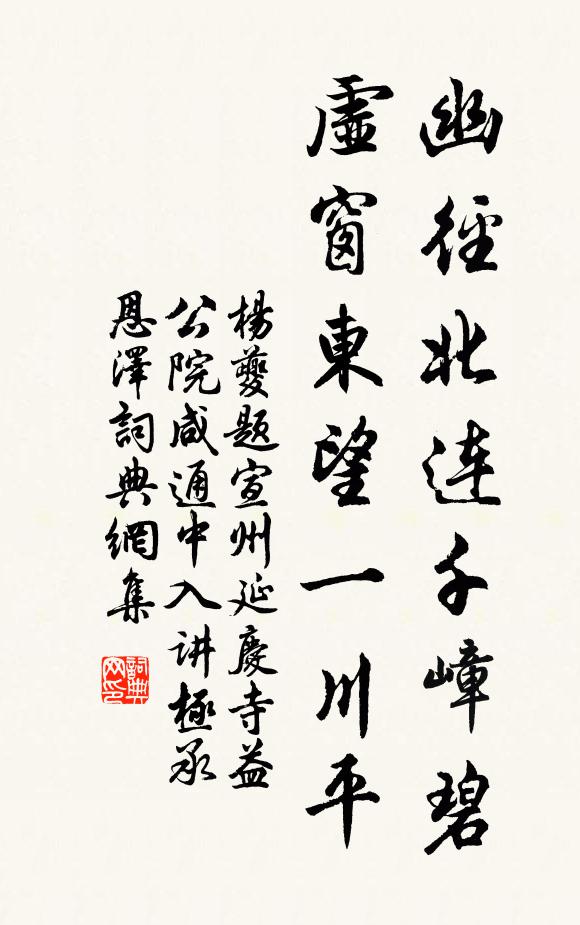 幽徑北連千嶂碧
虛窗東望一川平
楊夔題宣州延慶寺益
公院咸通中入讲極承
恩澤詞典網集
詞典
网印